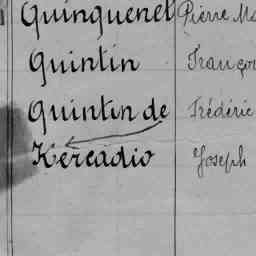 Quinquenel Pierre Ma
Quintin Françoi
Quintin de Frédéric
Kercadio Joseph